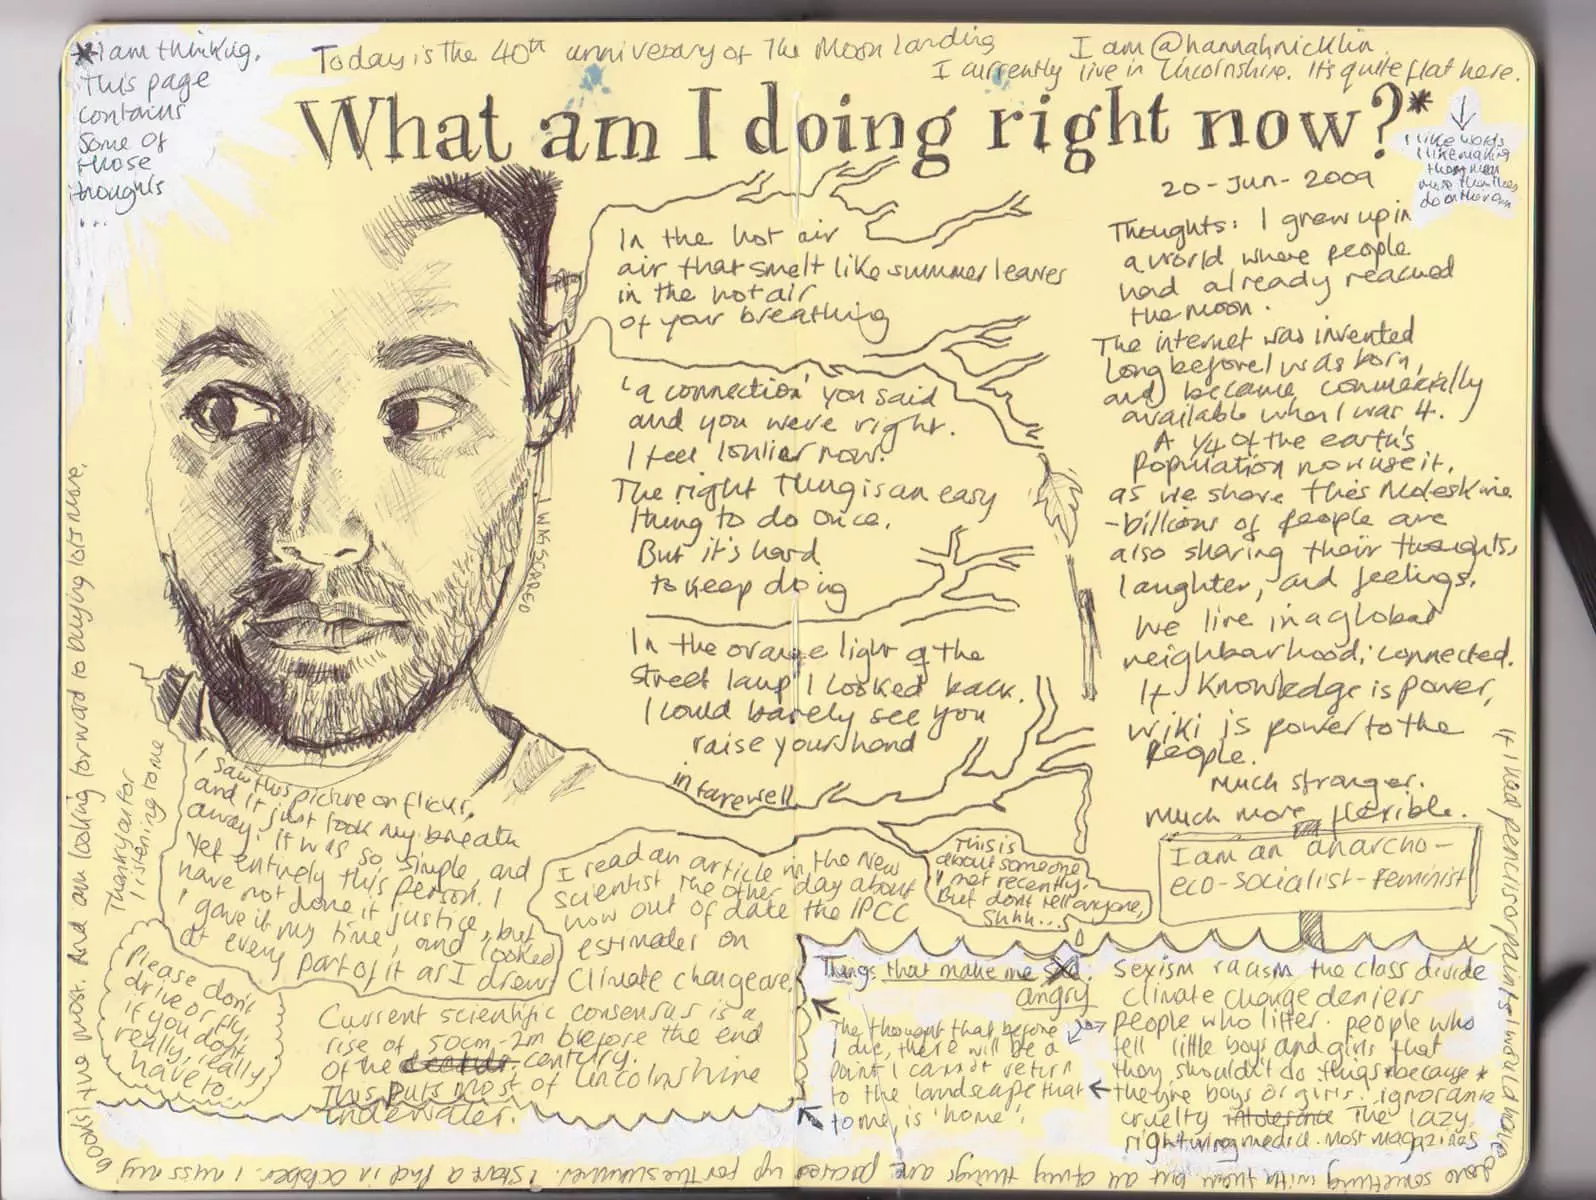 *I am thinking.
This page
contains
some of
those
thoughts
...
Today is the 40th anniversary of the Moon landing
I am @hannahnicklin.
I currently live in Lincolnshire. It's quite flat here.
What am I doing right now?*
I like words
I like making
them mean
more than they
do on their own
20-Jun-2009
In the hot air
air that smelt like summer leaves
in the hot air
of your breathing
'a connection' you said
and you were right.
I feel lonlier now.
The right thing is an easy
thing to do once.
But it's hard
to keep doing
In the orange light of the
street lamp I looked back.
I could barely see you
raise your hand
in farewell
I WAS SCARED
Thoughts: I grew up in
a world where people
had already reached
the moon.
The internet was invented
long before I was born,
and became commercially
available when I was 4.
A 1/4 of the earth's
population now use it.
as we share this Moleskine
-billions of people are
also sharing their thoughts,
laughter, and feelings.
We live in a global
neighbourhood, connected.
If knowledge is power,
wiki is power to the
people.
Much stranger.
Much more flexible.
I am an anarcho-
eco-socialist-feminist
Thank you for
listening to me
I saw this picture on flickr,
and it just took my breath
away. It was so simple, and
yet entirely this person. I
have not done it justice, but
I gave it my time, and looked
at every part of it as I drew
I read an article in the New
Scientist the other day about
how out of date the IPCC
estimates on
Climate change are.
Current scientific consensus is a
rise of 50cm-2m before the end
of the century.
This puts most of Lincolnshire
underwater.
This is
about someone
I met recently.
But dont tell anyone,
Shhh...
Please don't
drive or fly
if you don't
really, really
have to.
Things that make me sad:
angry
The thought that before
I die, there will be a
point I cannot return
to the landscape that
to me, is 'home'.
Sexism racism the class divide
climate change deniers
people who litter. people who
tell little boys and girls that
they shouldn't do things *because*
they're boys or girls. ignorance
cruelty intolerance The lazy
right wing media. Most magazines
If I had pencils or paints I would have
done something with them but all of my things are packed up for the summer. I start a PhD in October. I miss my
book(s) the most. And am looking forward to buying lots more.